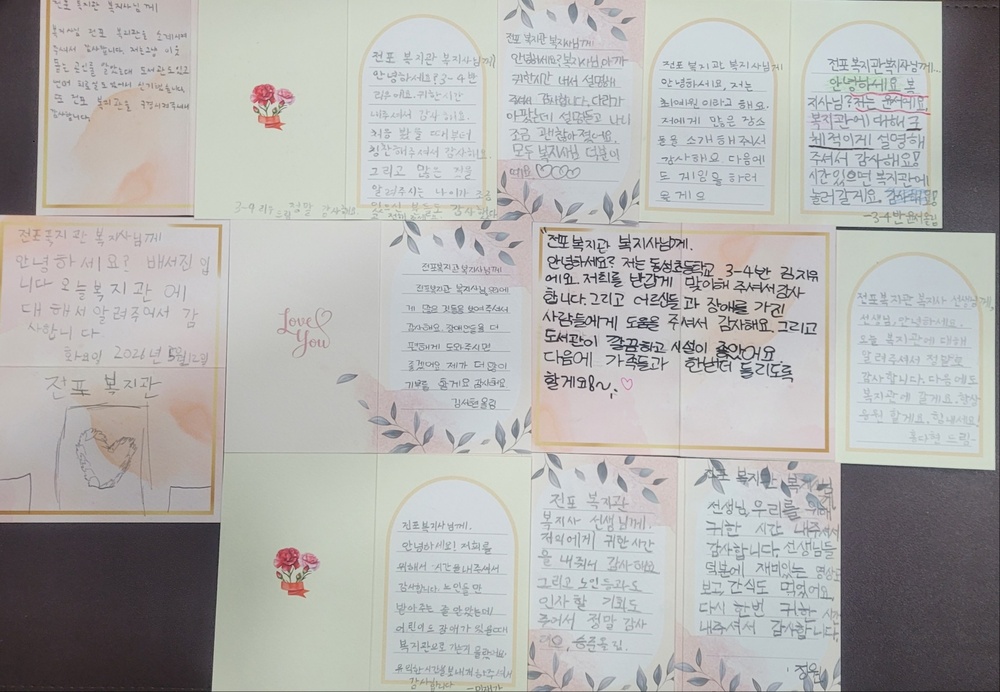 전포 복지관 복지사님께
복지사님 전포 복지관을 소개시켜
주셔서 감사합니다. 저는 그냥 이웃
돕는 곳인줄 알았는데 도서관도 있고
언어 치료실도 있어서 신기했습니다.
또 전포 복지관을 구경시켜주셔서
감사합니다.
전포 복지관 복지사님께
안녕하세요? 3-4반
리우예요. 귀한 시간
내주셔서 감사해요.
처음 봤을 때부터
칭찬해주셔서 감사해요.
그리고 많은 지식
알려주시는 나이가 조금
있으신 분들도 감사합니다
3-4 리우드림 정말 감사해요.
전포 복지관 복지사님께
안녕하세요? 복지사님 아까
귀한시간 내서 설명해
주셔서 감사합니다. 다리가
아팠는데 설명듣고 나니
조금 괜찮아졌어요.
모두 복지사님 덕분이
에요. ♡♡♡♡
전포 복지관 복지사님께
안녕하세요, 저는
최예원이라고 해요.
저에게 많은 장소
들을 소개해 주셔서
감사해요 다음에
또 게임을 하러
올게요
전포복지관복지사님께...
안녕하세요 복
지사님? 저는 윤서예요.
복지관에 대해 구
체적이게 설명해
주셔서 감사해요!
시간있으면 복지관에
놀러갈게요. 감사해요
-3-4반 윤서올림
전포복지관 복지사님께
안녕하세요? 배서진 입
니다 오늘 복지관 에
대해서 알려주여서 감
사합니다
화요일 2026년 5월 12일
전포 복지관
Love
You
전포복지관복지사님께
전포복지관 복지사님, 저에
게 많은 것들을 보여주셔서
감사해요. 장애인들을 더
또해게 도와주시면
좋겠어요 제가 더 많이
기부를 할게요 감사해요
김서현올림
전포복지관 복지사님께.
안녕하세요? 저는 동성초등학교 3-4반 김지유
에요. 저희를 반갑게 맞이해 주셔서감사
합니다. 그리고 어르신들과 장애를 가진
사람들에게 도움을 주셔서 감사해요. 그리고
도서관이 깔끔하고 시설이 좋았어요
다음에 가족들과 한번더 들리도록
할게요!~; ♡
전포복지관 복지사 선생님께,
선생님, 안녕하세요.
오늘 복지관에 대해
알려주셔서 정말로
감사합니다. 다음에도
복지관에 갈게요. 항상
응원 할게요. 힘내세요!
다현 드림-
전포복지사님께.
안녕하세요! 저희를
위해서 시간을내주셔서
감사합니다. 노인들만
받아주는 줄 알았는데
어린이도 장애가 있을때
복지관으로 가는지 몰랐어요.
유익한시간을보내게해주셔서
감사합니다
전포 복지관
복지사 선생님께.
저의에게 귀한시간
을 내줘서 감사해요
그리고 노인들과도
인사할 기회도
주어서 정말 감사
해요, 승준올림.
전포 복지관 복지사님
선생님, 우리를 위해
귀한 시간 내주셔서
감사합니다. 선생님들
덕분에 재미있는 영상도
보고, 간식도 먹었어요.
다시 한번 귀한 시간
내주셔서 감사합니다.